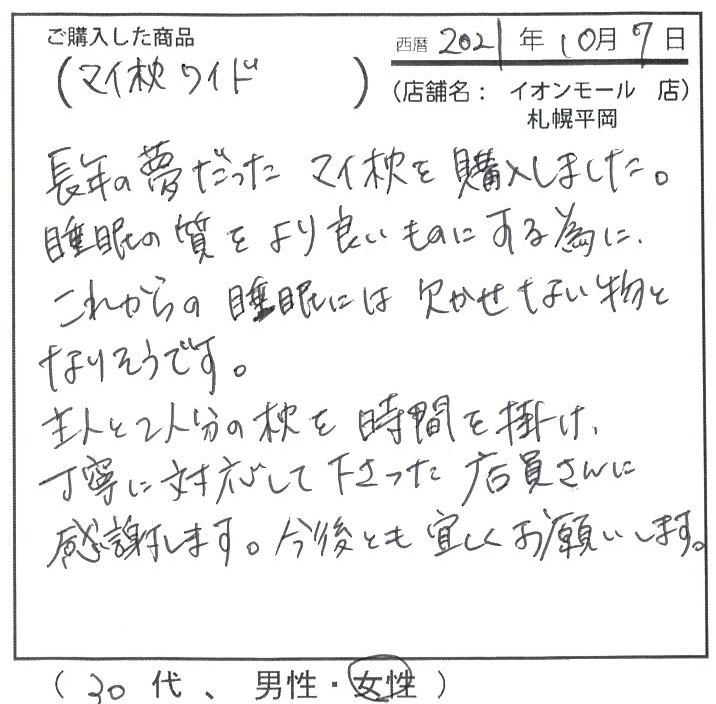 ご購入した商品
(マイ枕 ワイド )
西暦 2021 年 10月 7日
(店舗名: イオンモール 店)
札幌平岡
長年の夢だった マイ枕を購入しました。
睡眠の質をより良いものにする為に、
これからの睡眠には欠かせない物と
なりそうです。
主人と2人分の枕を時間を掛け、
丁寧に対応して下さった店員さんに
感謝します。今後とも宜しくお願いします。
( 30 代 、 男性・女性 )